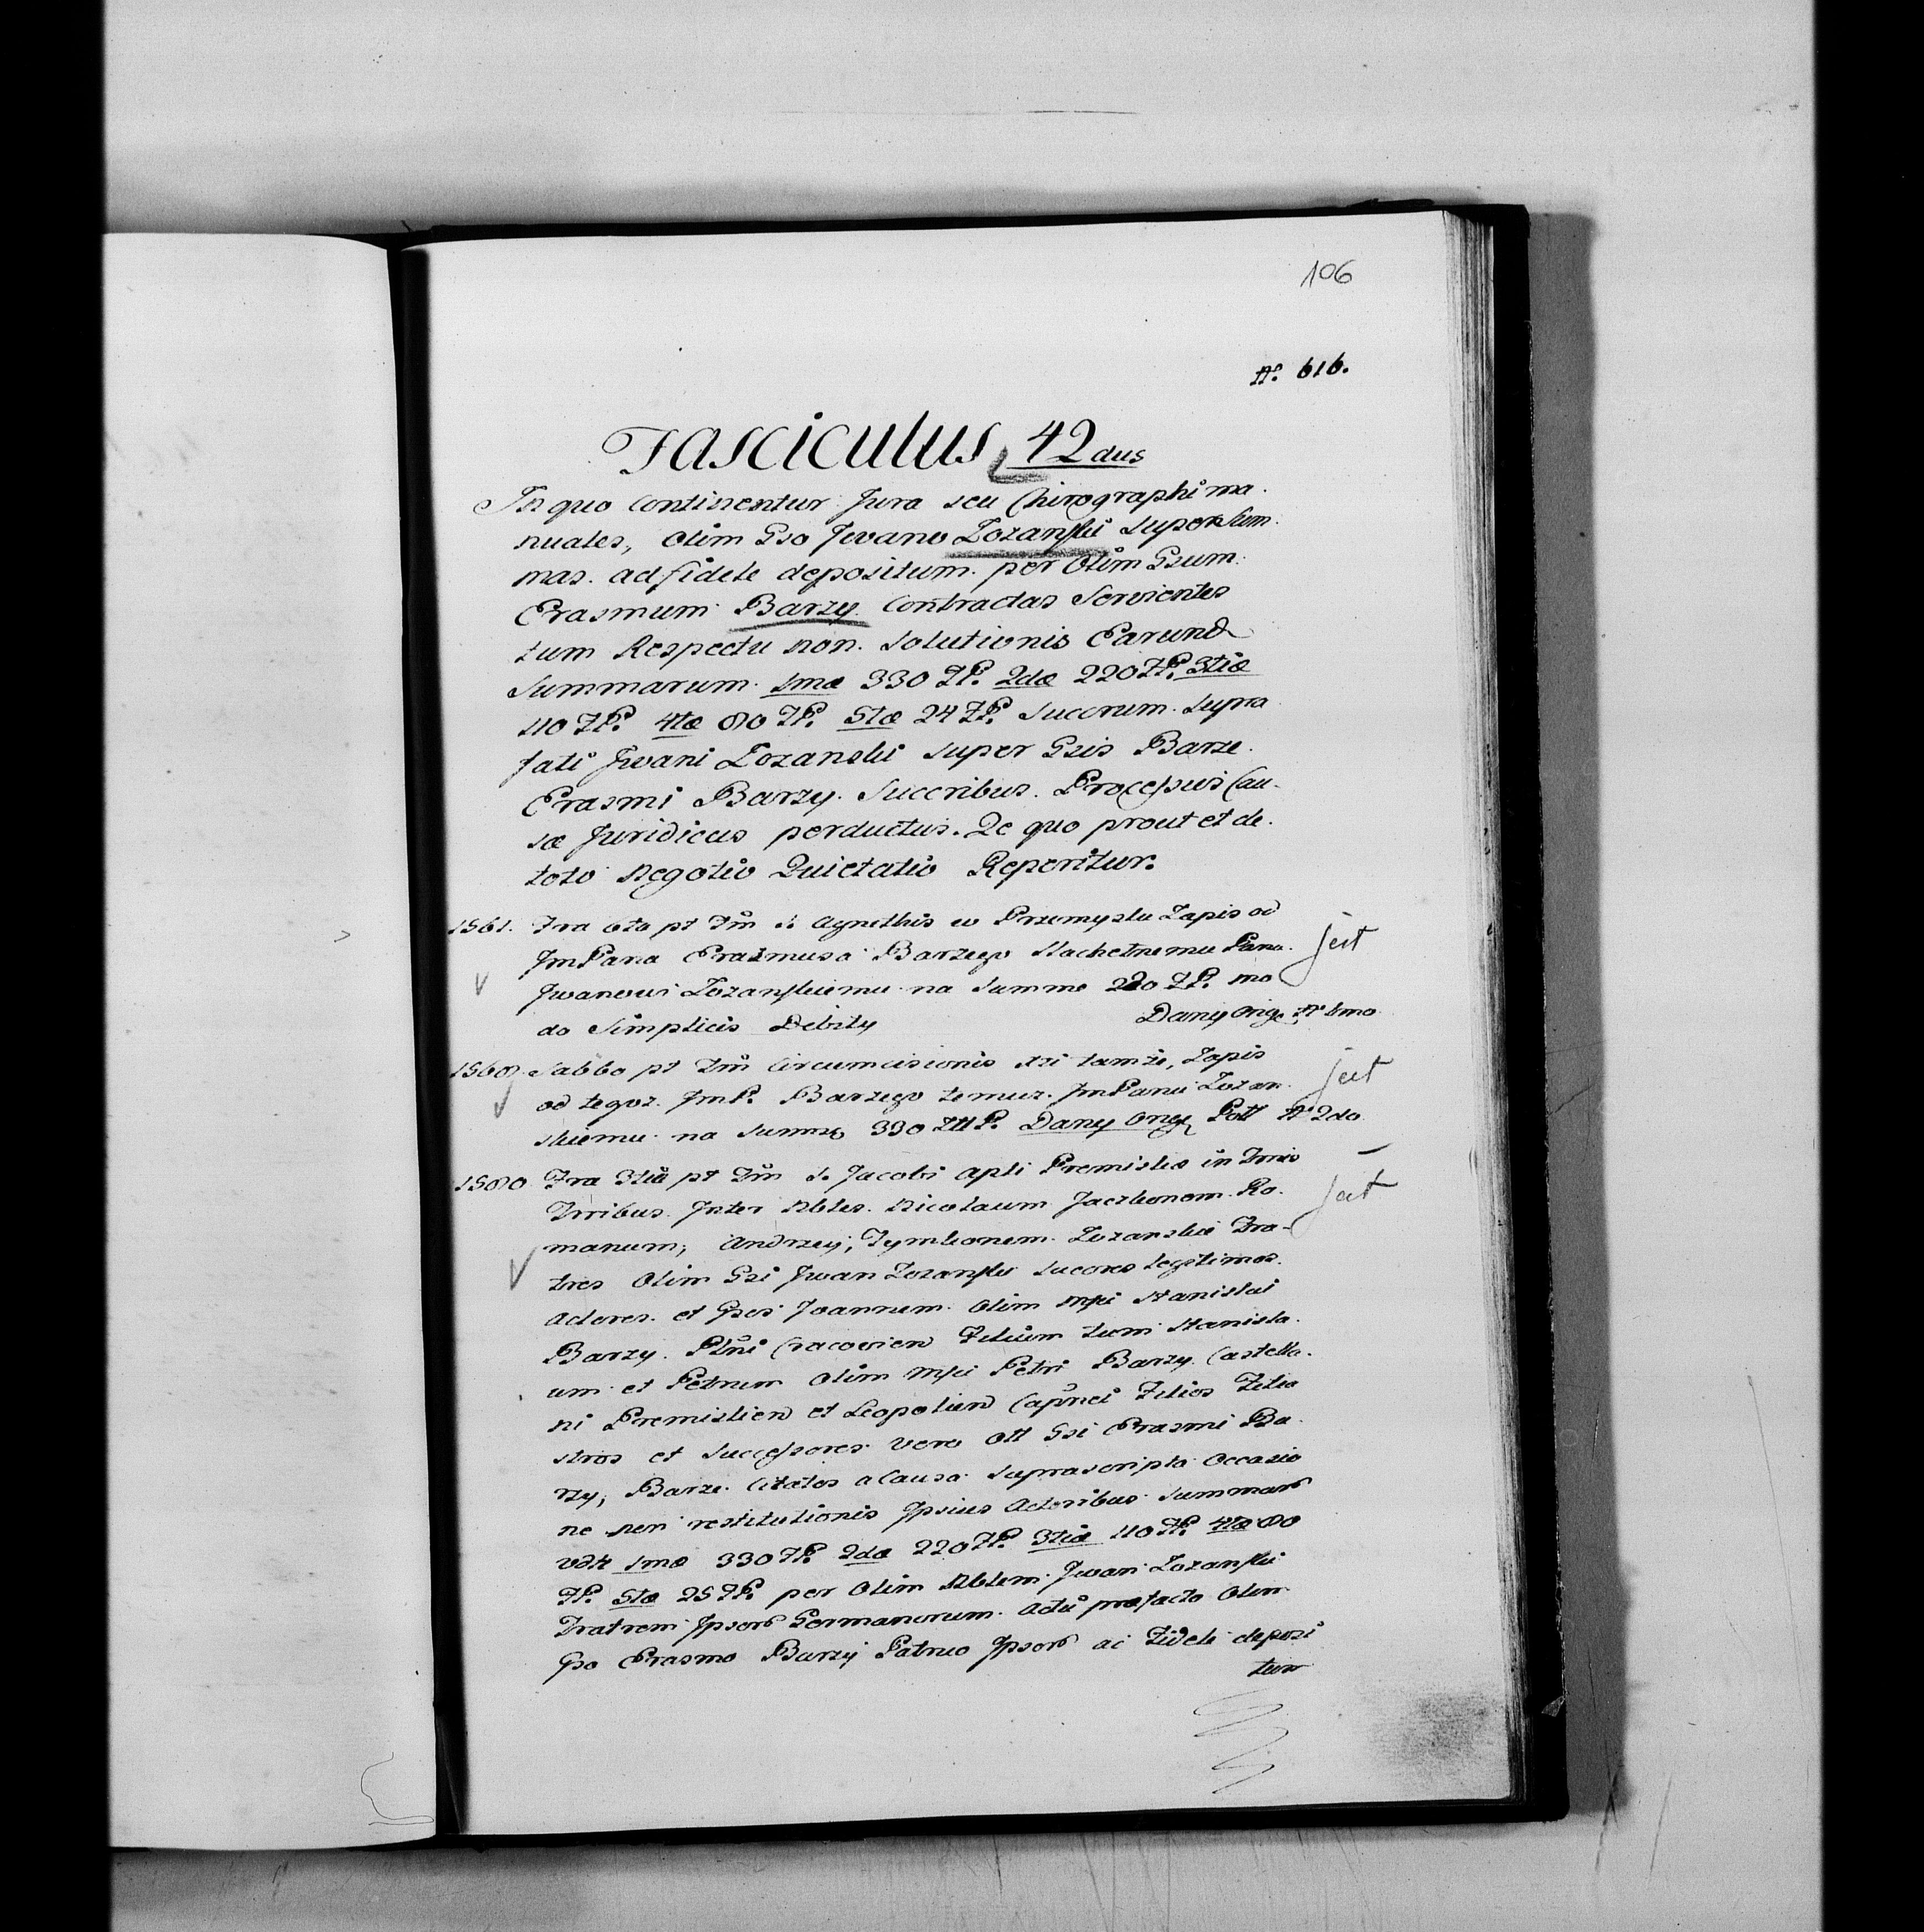 106
No. 616.
Fasciculus 42dus
In quo Continentur Jura seu Chirographi ma.
nuales, Olim Gso Jwano Łozanski super sum.
mas. ad fidele depositum. per Olim Gsum.
Erasmum Barzy. Contractas Servientes
tum Respectu non. Solutionis Earund
Summarum. 1mæ 330 ZP. 2dæ 220 ZP. 3tiæ
110 ZP. 4tæ 80 ZP. 5tæ 24 ZP. Succrum. supra
fati Jwani Łozanski super Gsis Barze.
Erasmi Barzy. Succribus. Processus Cau.
sæ Juridicus perductus. De quo prout et de.
toto Negotio Quietatio Reperitur.
1561. Fra 6ta pt Fm S. Agnethis w Przemyslu Zapis od
JmPana Erazmusa Barzego Slachetnemu Panu. jest
Jwanowi Łozanskiemu na Summe 220 ZP. mo
do Simplicis Debity Dany Orig. No 1mo
1568. Sabbo pt Fm Circumcisionis Xti tamże, Zapis jest
od tegoz. JmP. Barzego temuz. JmPanu Łozan.
skiemu na Summę 330 ZllP. Dany Orig. Pott No 2do
1580 Fra 3tia pt Fm S. Jacobi Apli Premislie in Tmis jest
Trribus. Inter Nbles. Nicolaum Jaczkonem. Ro.
manum, Andrzey, Tymkonem. Łozanskie Fra-
tres Olim Gsi Jwan Łozanski Sucores legitimos.
Actores. et Gsos Joannem. Olim Mfci Stanislai
Barzy. Pltni Cracovien Filium tum Stanisla.
um et Petrum Olim Mfci Petri Barzy. Castella.
ni Premislien et Leopolien Capnei Filios Filia
stros et Successores vero Olt Gsi Erasmi Ba.
rzy, Barze. Citatos a Causa Suprascripta Occasio
ne non restitutionis Ipsius Actoribus Summarb
vdlt 1mæ 330 ZP. 2dæ 220 ZP. 3tiæ 110 ZP. 4tæ 80
ZP. 5tæ 25 ZP. per Olim Nblem. Jwan Łozanski
Fratrem Ipsorb Germanorum. Actu præfacto Olim
Gso Erasmo Barzy Patruo Ipsorb ac Fideli deposi
tum